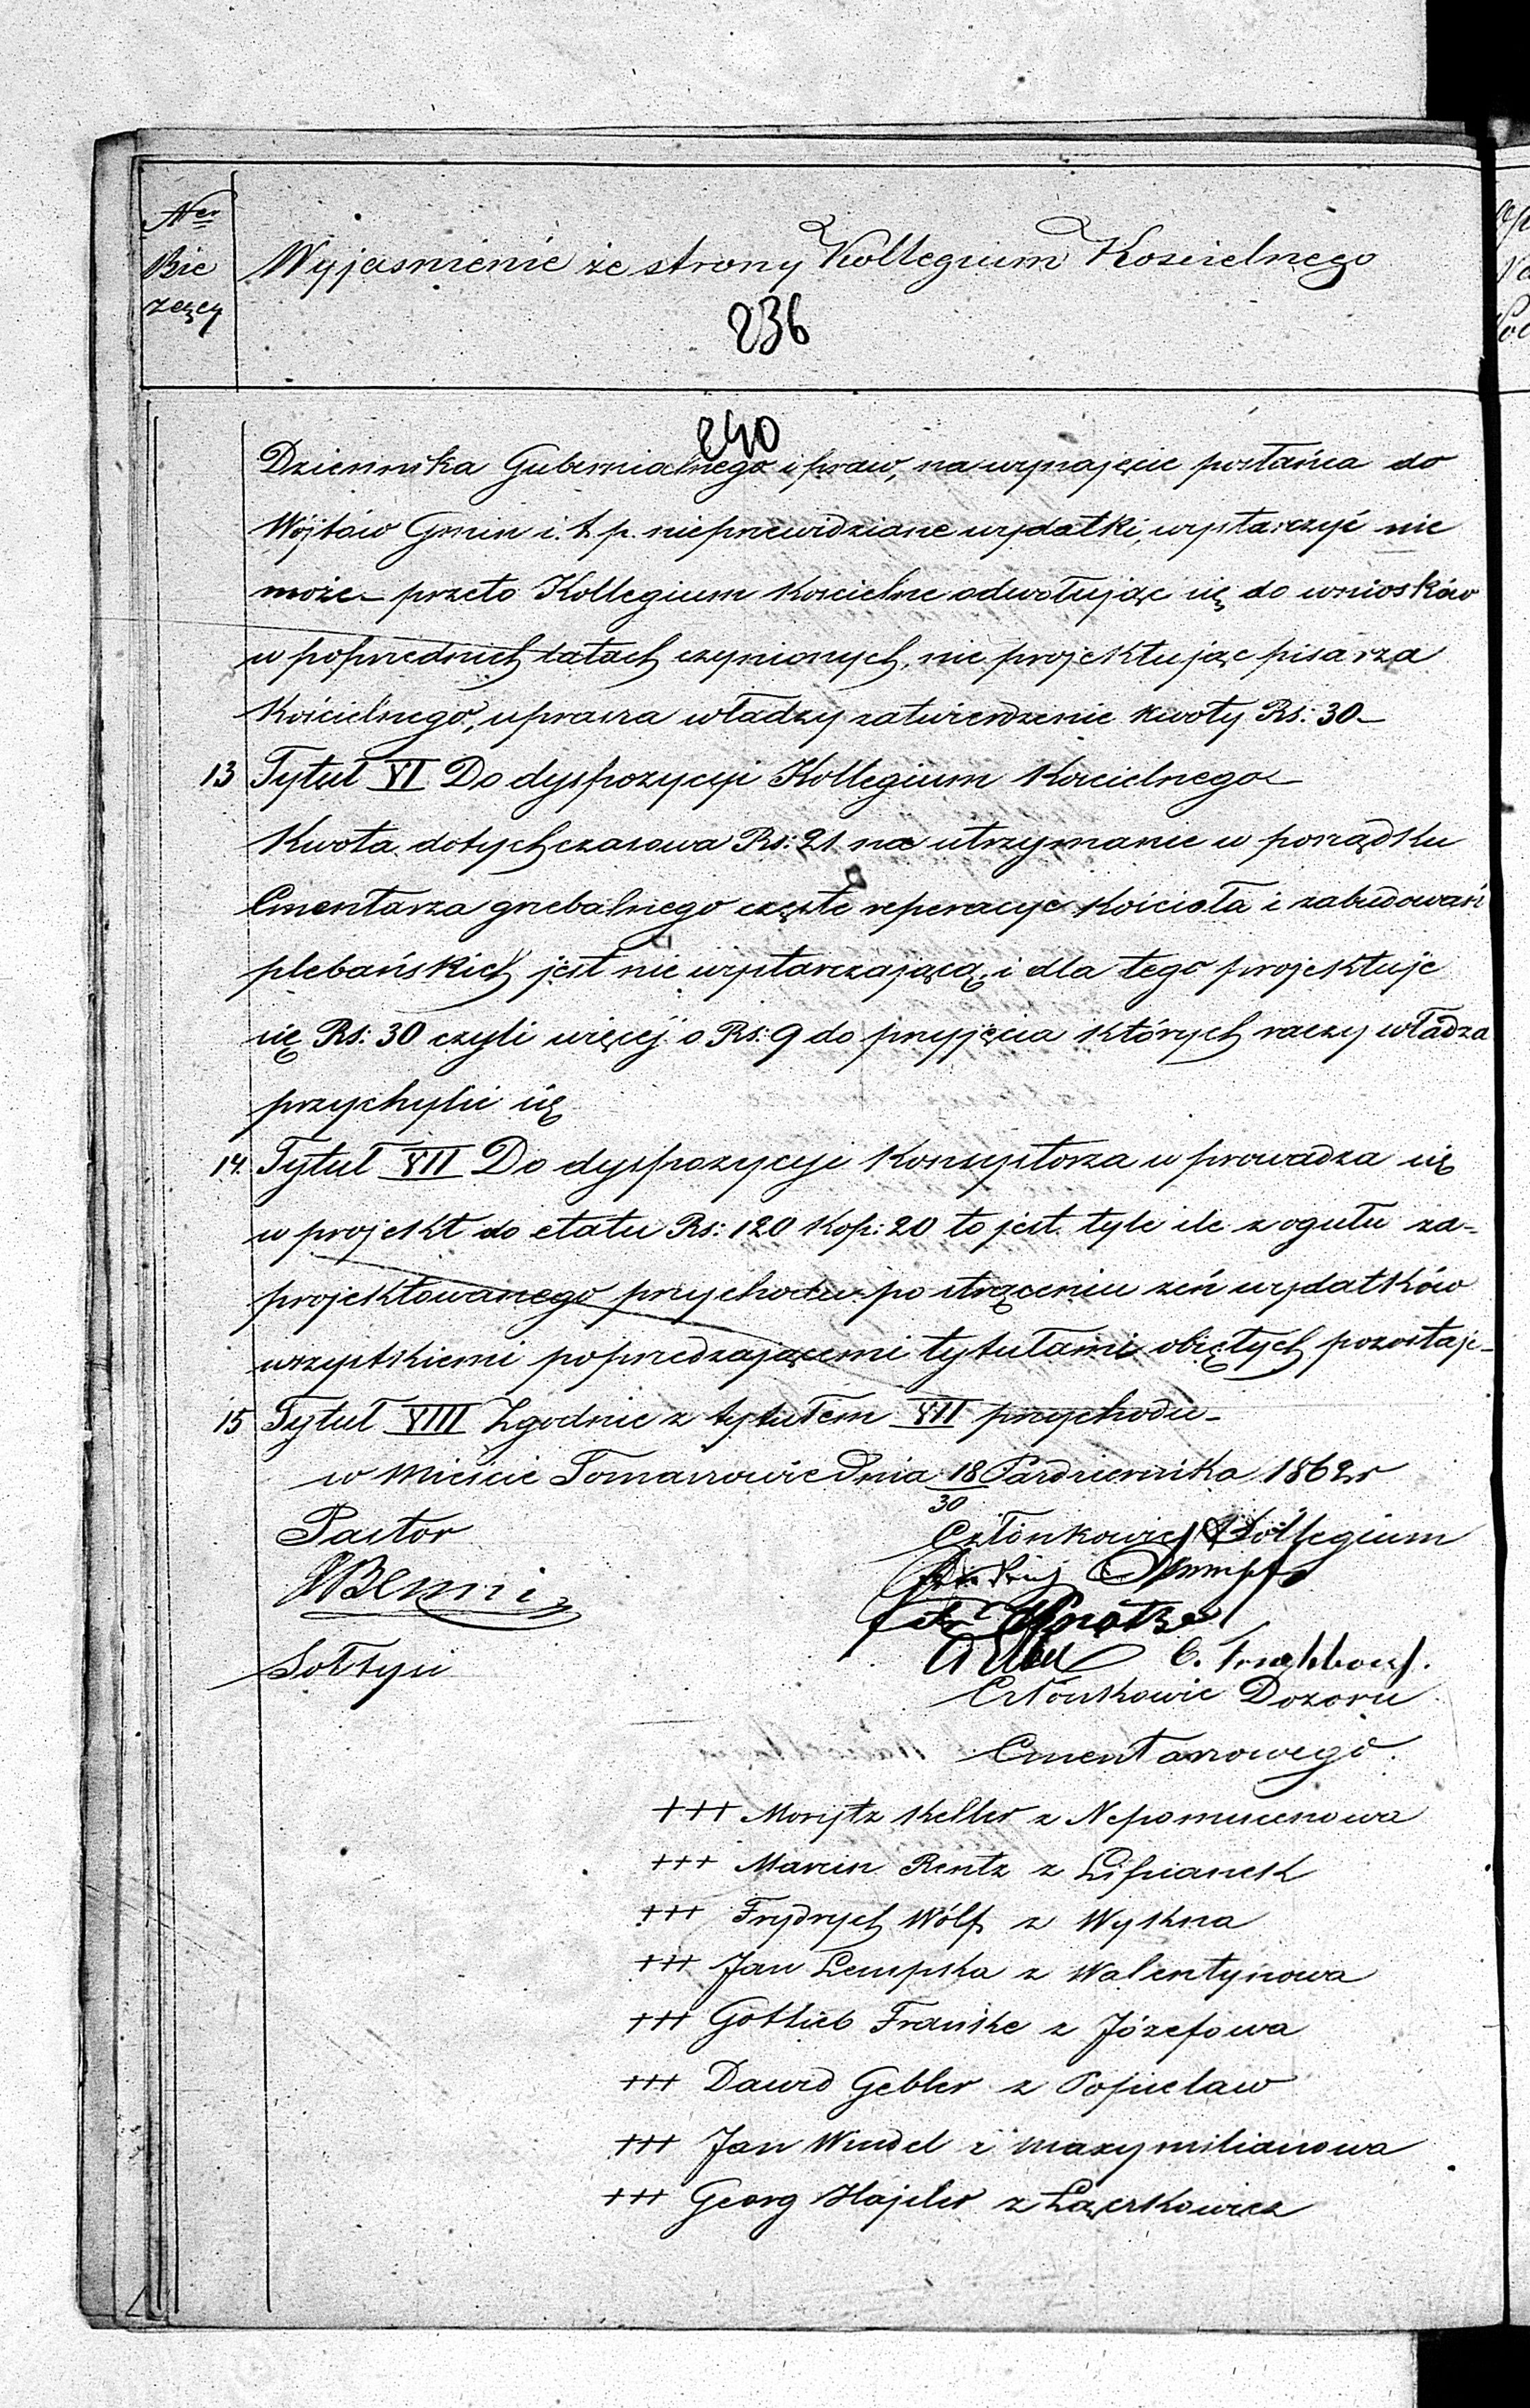 Ner
Bie
zący
Wyjasnienie ze strony Kollegium Koscielnego
236
240
Dziennika Gubernialnego i praw, na wynajęcie posłańca do
Wójtów Gmin i. t. p. nieprzewidziane wydatki, wystarczyć nie
może – przeto Kollegium Kościelne odwołując się do wniosków
w poprzednich latach czynionych, nie projektując pisarza
Kościelnego, uprasza władzy zatwierdzenie kwoty Rs: 30 –
13 Tytuł VI Do dyspozycyi Kollegium Kościelnego –
Kwota dotychczasowa Rs: 21 na utrzymanie w porządku
Cmentarza grzebalnego częste reperacye Kościoła i zabudowań
plebańskich jest nie wystarczającą, i dla tego projektuje
się Rs: 30 czyli więcej o Rs: 9 do przyjęcia których raczy władza
przychylić się
14. Tytuł VII Do dyspozycyi Konsystorza w prowadza się
w projekt do etatu Rs: 120 Kop: 20 to jest tyle ile z ogułu za-
projektowanego przychodu po strąceniu zeń wydatków
wszystkiemi poprzedzającemi tytułami obiętych pozostaje –
15 Tytuł VIII Zgodnie z tytułem VII przychodu –
w Mieście Tomaszowie Dnia 18 Pazdziernika 1862 r
30
Pastor Członkowie Kollegium
Benni
Sołtysi
Członkowie Dozoru
Cmentarzowego.
+++ Morytz Keller z Nepomucenowa
+++ Marcin Rentz z Lipianek
+++ Frydrych Wólf z Wykna
+++ Jan Lempka z Walentynowa
+++ Gottlieb Franske z Józefowa
+++ Dawid Gebler z Popielaw
+++ Jan Wendel z Maxymilianowa
+++ Georg Hajeler z Łączkowicz